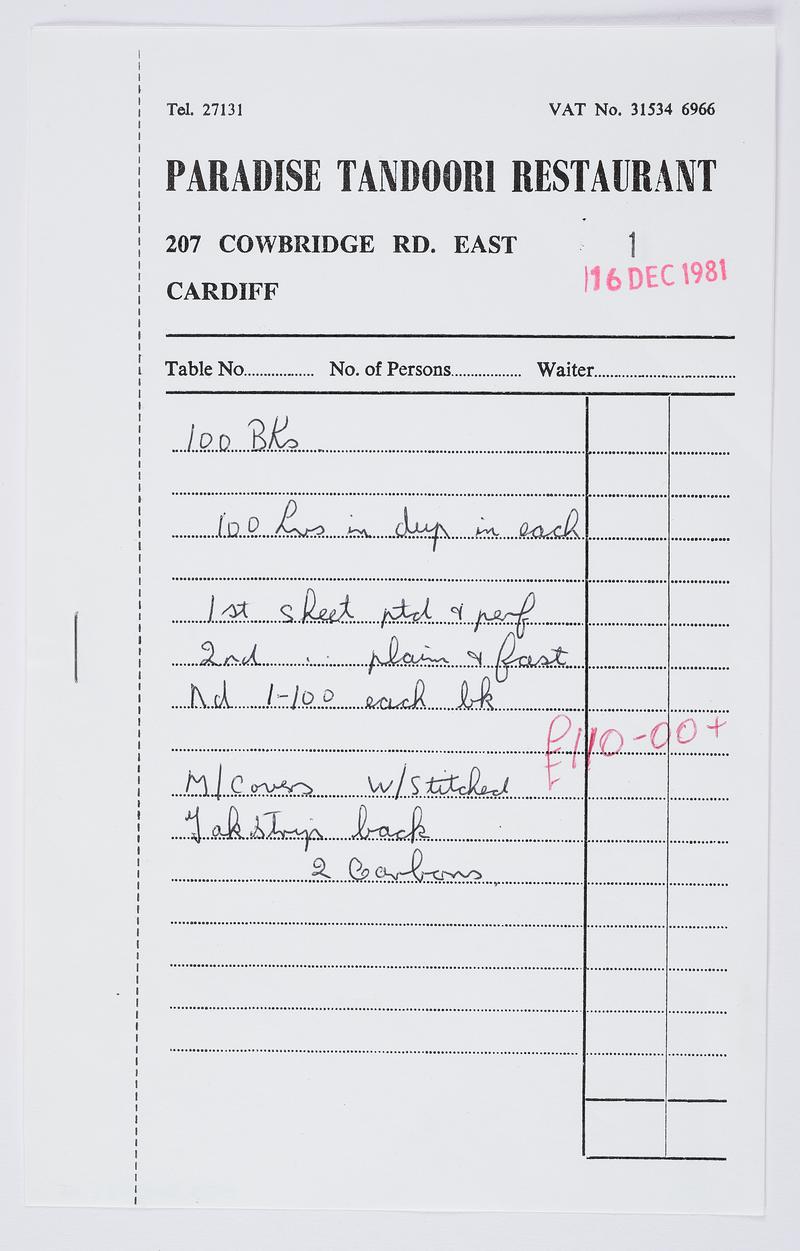 Tel. 27131 VAT No. 31534 6966
PARADISE TANDOORI RESTAURANT
207 COWBRIDGE RD. EAST 1
16 DEC 1981
CARDIFF
Table No. No. of Persons Waiter
100 BKs
100 lvs in dup in each
1st sheet ptd & perf
2nd .. plain & fast
Nd 1-100 each bk
£110-00+
M/Covers W/Stitched
back
2 Carbons